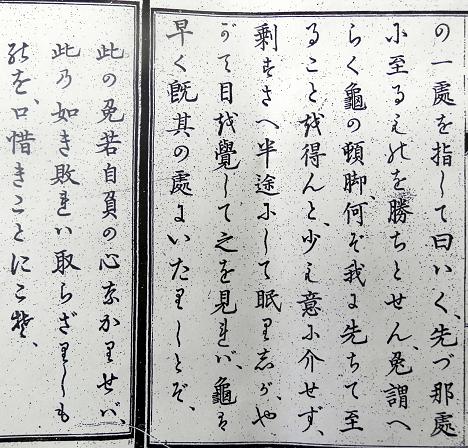 の一處を指して曰いく、先づ那處
に至るものを勝ちとせん、兔謂へ
らく龜の頓脚、何ぞ我に先ちて至
ることを得んと、少も意に介せず、
剩さへ半途にして眠りしが、や
がて目を覺して之を見れば、龜は
早く既其の處にいたりしとぞ、
此の兔若自負の心なかりせば、
此の如き敗れは取らざりしも
のを、口惜きことにこそ、